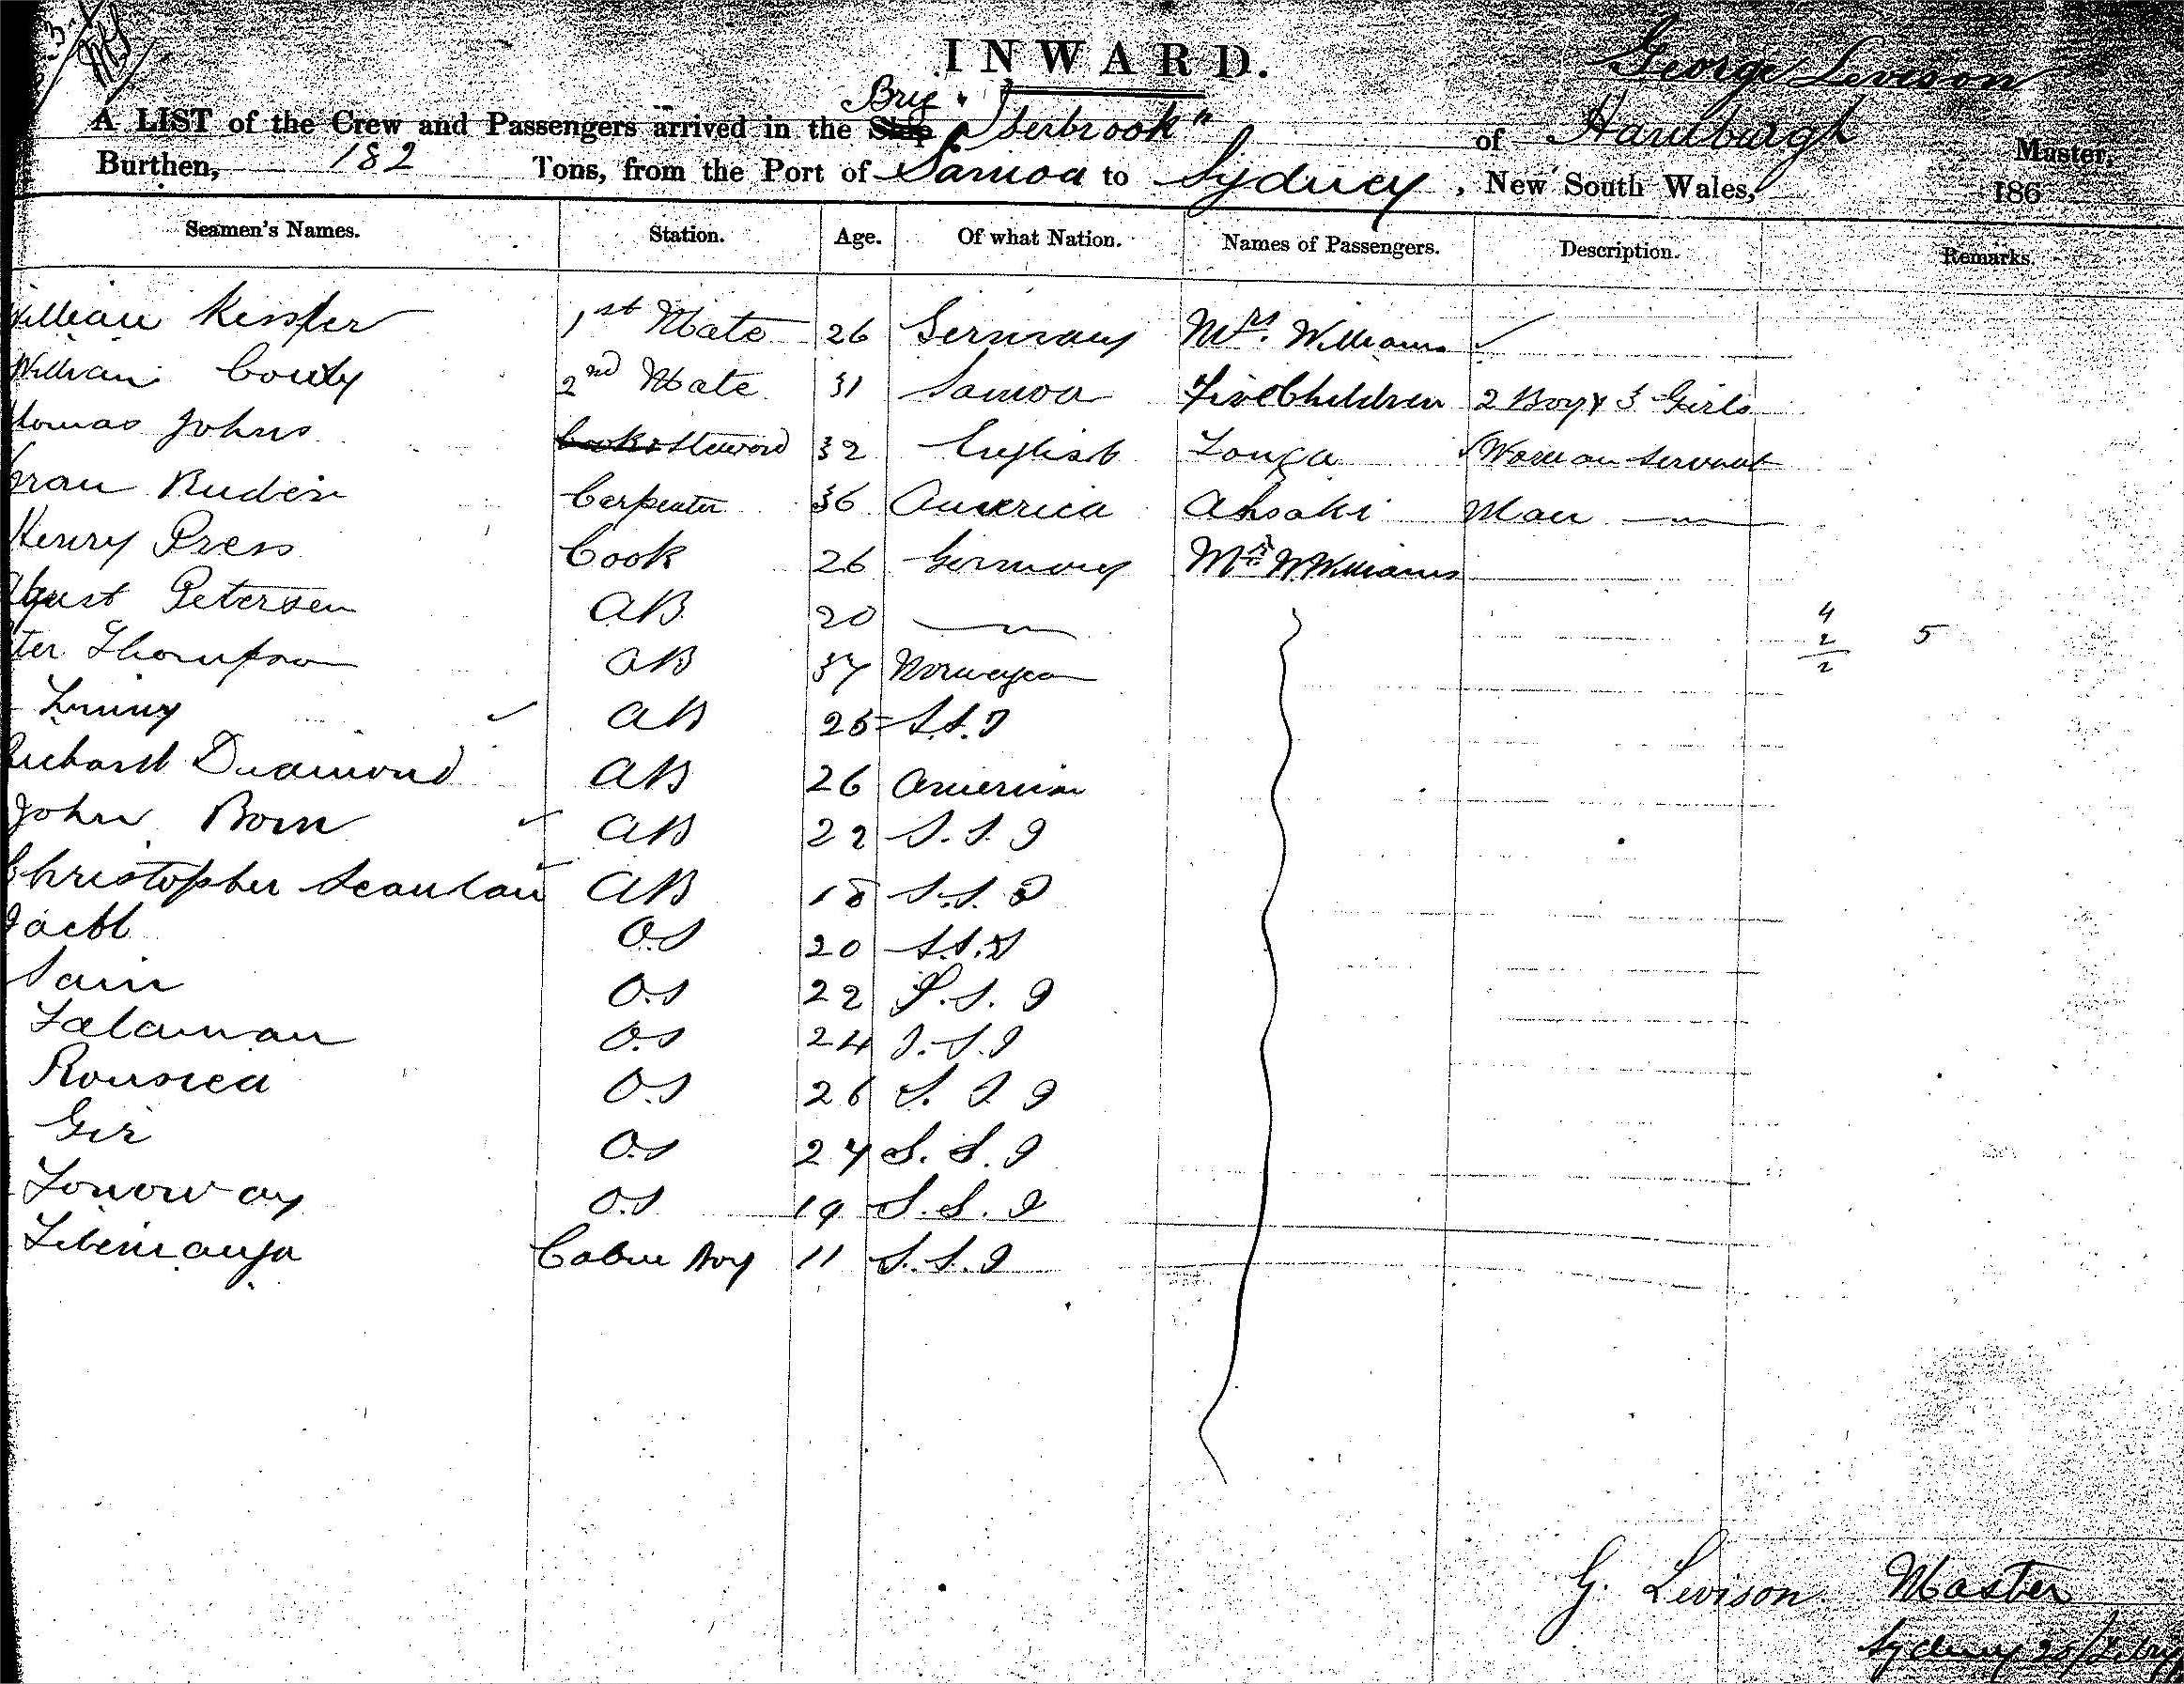 INWARD.
George Levison
A LIST of the Crew and Passengers arrived in the Ship Brig "Iserbrook" of Hamburgh Master,
Burthen, 182 Tons, from the Port of Samoa to Sydney, New South Wales, 186
Seamen's Names. Station. Age. Of what Nation. Names of Passengers. Description. Remarks.
William Kessler 1st Mate 26 Germany Mrs. Williams
William 2nd Mate 31 Samoa Five Children 2 Boy & 3 Girls
Thomas Johns Cook & Steward 32 English Tonga Woman Servant
Carpenter 36 America Man
Henry Press Cook 26 Germany Mr W Williams
August Petersen AB 20
Peter Thompson AB 37 Norwegian
AB 25 S.S.I
4
2
2
5
Richard Diamond AB 26 American
John Born AB 22 S.S.I
Christopher Scanlan AB 18 S.S.I
Jacob O.S 20 S.S.I
Sam O.S 22 S.S.I
O.S 24 S.S.I
O.S 26 S.S.I
O.S 24 S.S.I
O.S 19 S.S.I
Cabin Boy 11 S.S.I
G. Levison Master
Sydney